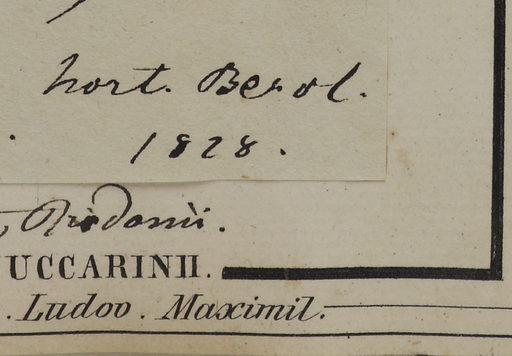 hort. Berol.
1828.
UCCARINII.
. Ludov. Maximil.